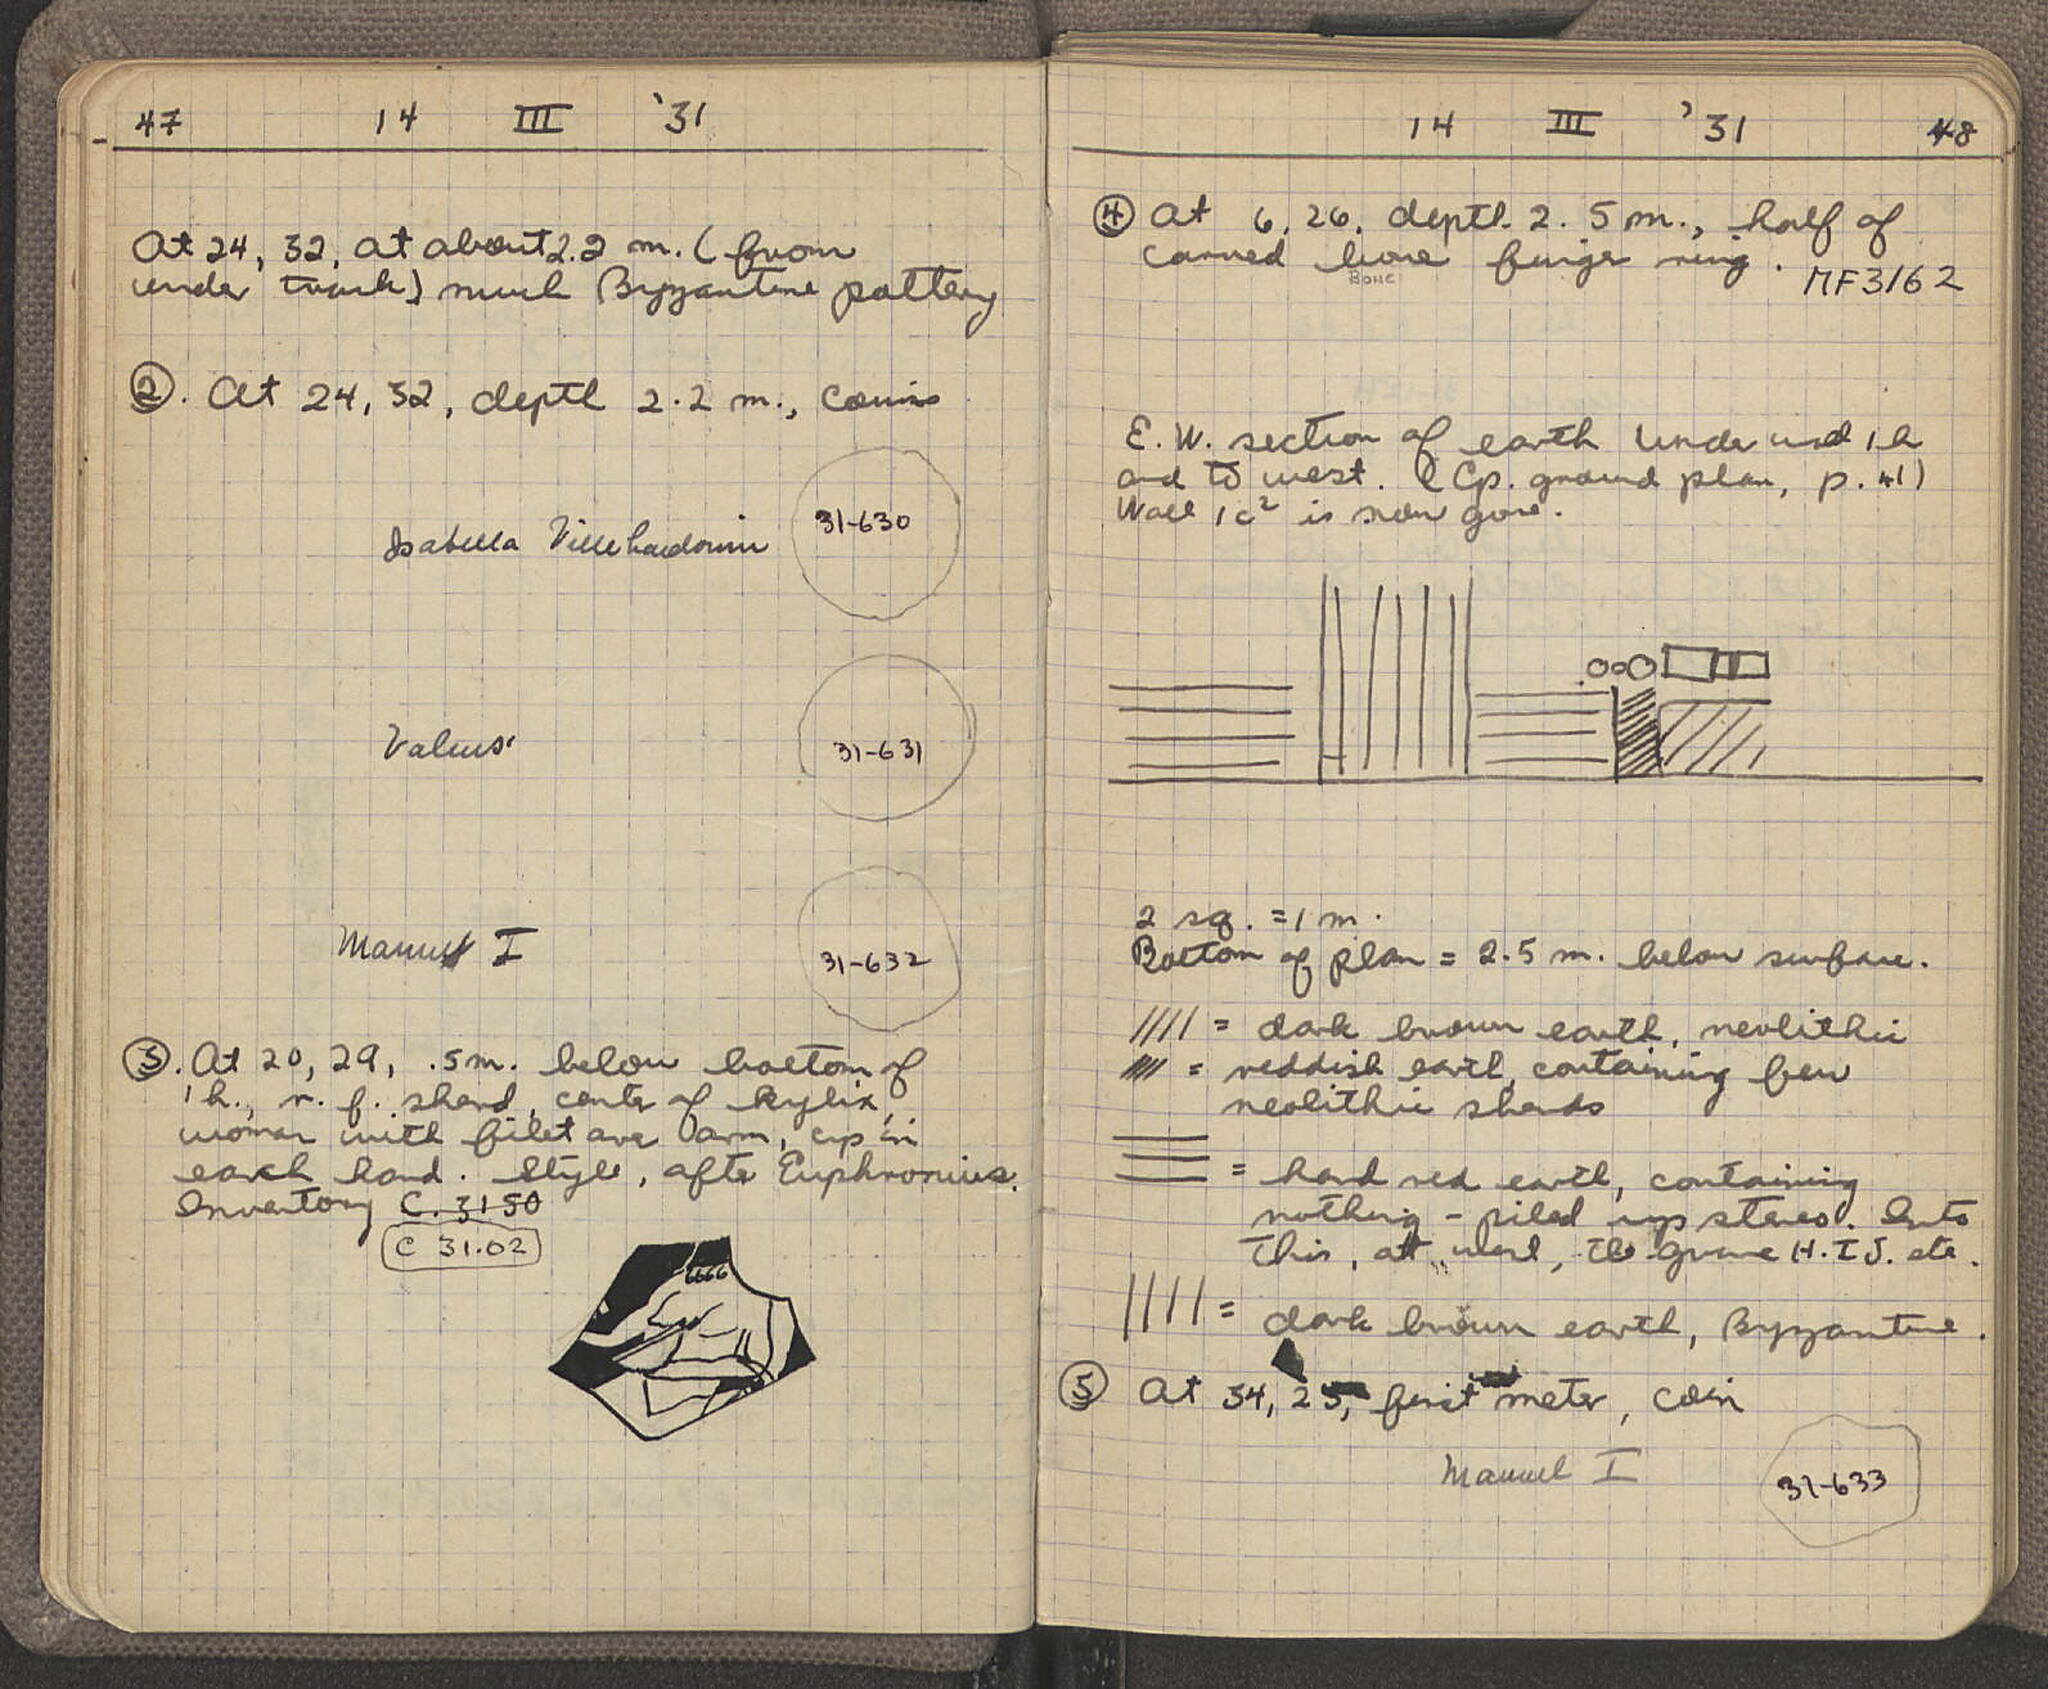 47 14 III '31
At 24, 32, at about 2.2 m. (from
under track) much Byzantine pottery
2. At 24, 32, depth 2.2 m., coins
Isabella Villehardouin 31-630
Valens 31-631
Manuel I 31-632
3. At 20, 29, .5 m. below bottom of
1h., r. f. sherd, center of kylix,
woman with filet over arm, cup in
each hand. Style, after Euphronius.
Inventory C. 3150
C 31.02
14 III '31 48
4 At 6, 26, depth 2.5 m., half of
carved bone finger ring.
BONE
MF3162
E. W. section of earth under wall 1h
and to west. (Cp. ground plan, p. 41)
Wall 1c² is now gone.
2 sq. = 1 m.
Bottom of plan = 2.5 m. below surface.
//// = dark brown earth, neolithic
//// = reddish earth, containing few
neolithic sherds
= hard red earth, containing
nothing - piled up stereo. Into
this, at west, the grave H. I J. etc.
|||| = dark brown earth, Byzantine.
5 At 34, 25, first meter, coin
Manuel I 31-633